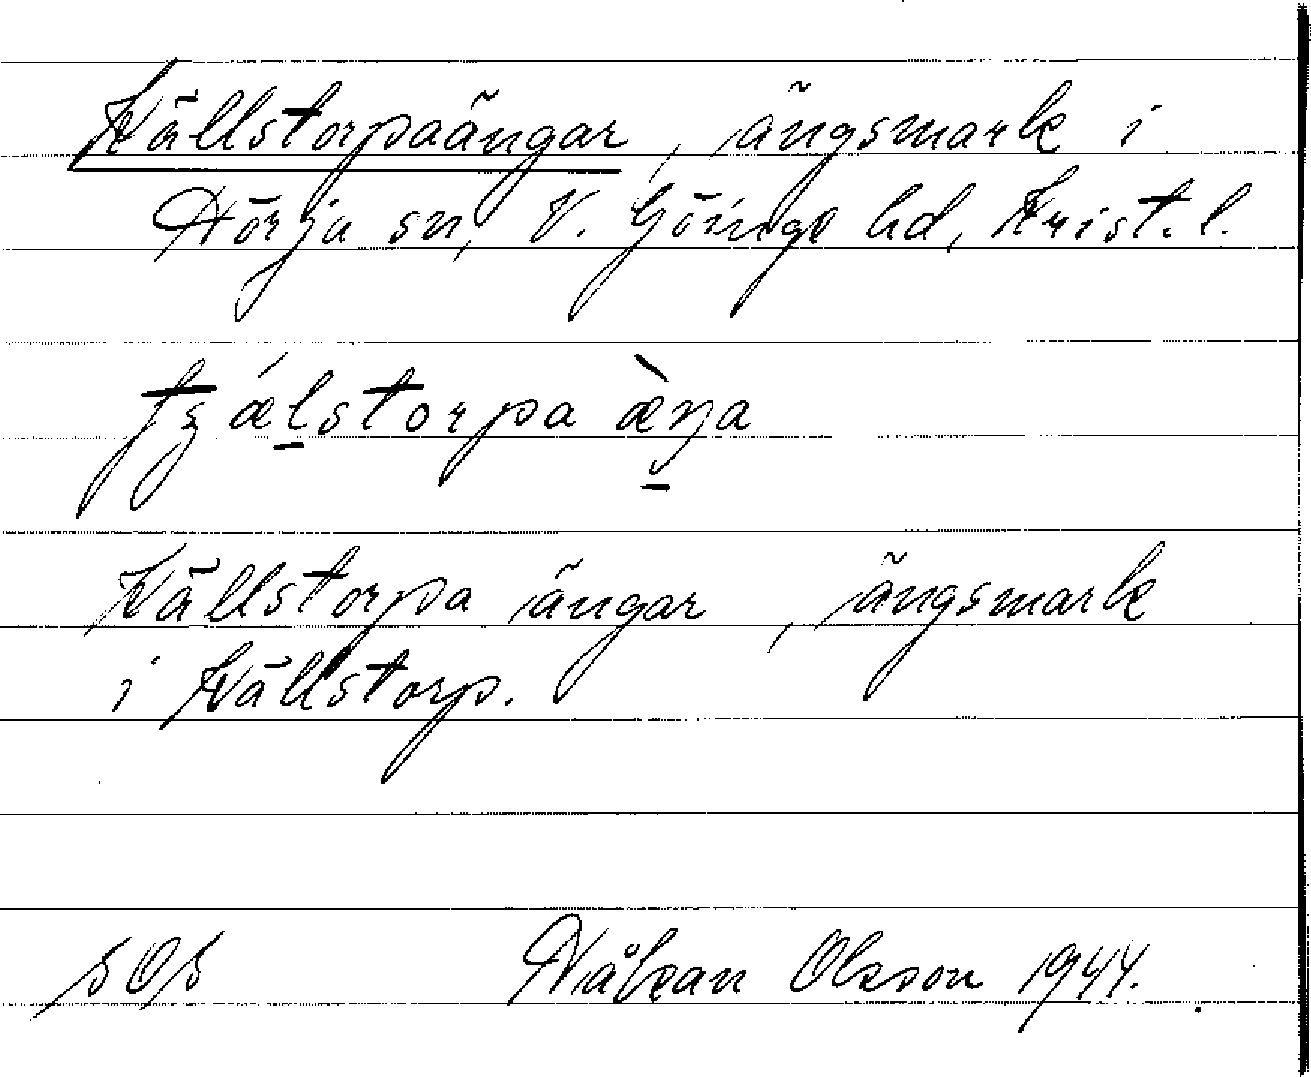 Källstorpaängar, ängsmark i
Hörja sn, V. Göinge hd, Krist. l.
Källstorpa ängar, ängsmark
i Källstorp.
SOS Håkan Olsson 1944.